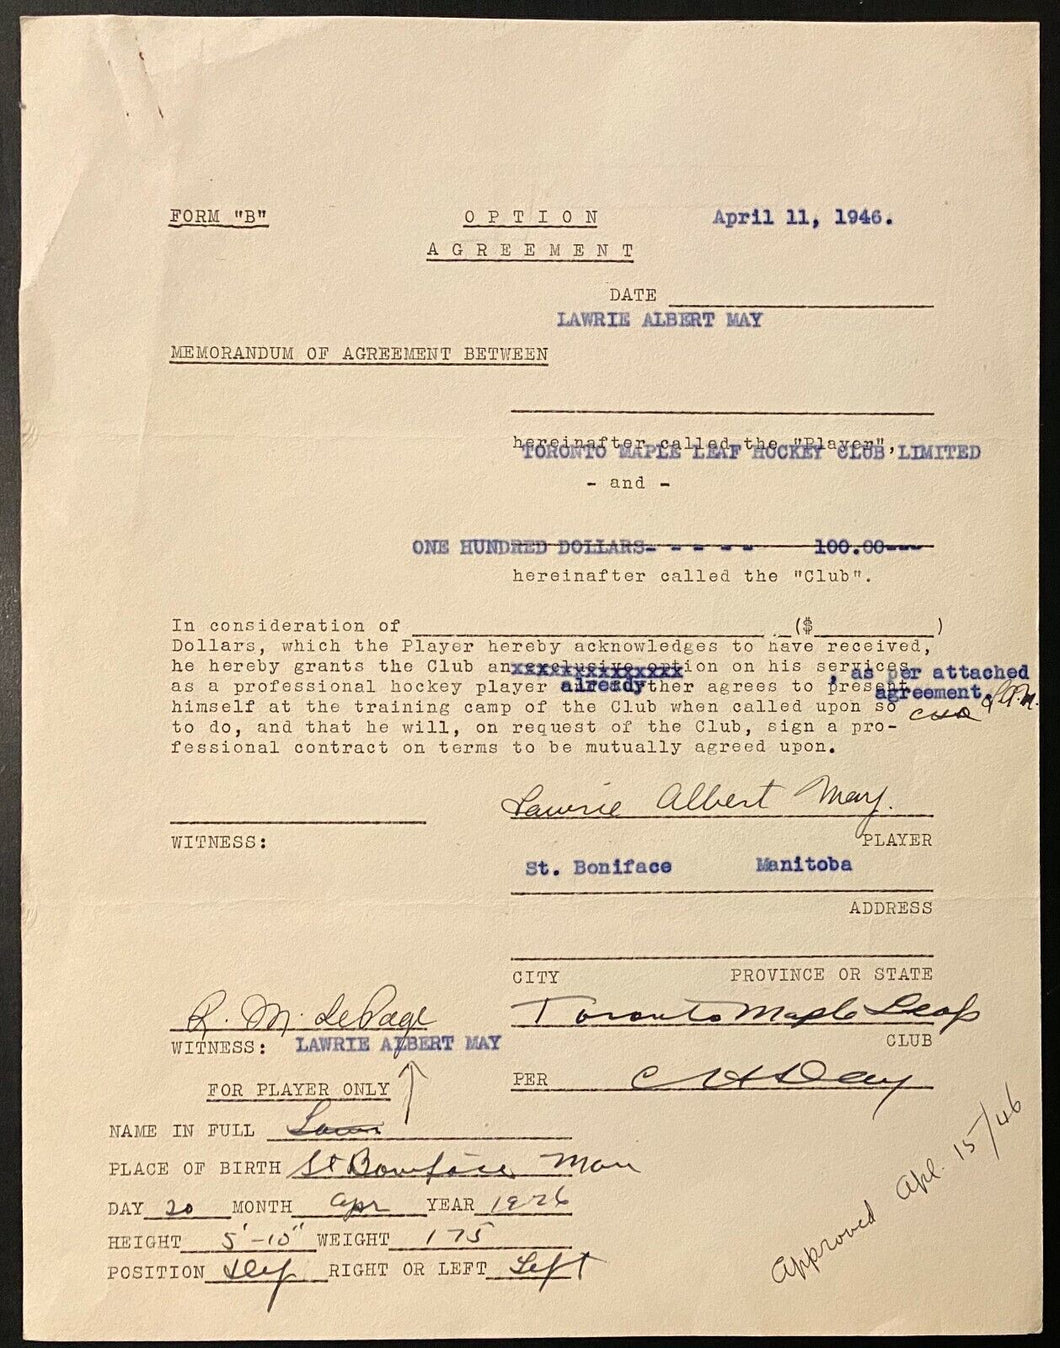 FORM "B" O P T I O N April 11, 1946.
A G R E E M E N T
DATE
LAWRIE ALBERT MAY
MEMORANDUM OF AGREEMENT BETWEEN
hereinafter called the "Player",
TORONTO MAPLE LEAF HOCKEY CLUB, LIMITED
- and -
ONE HUNDRED DOLLARS- - - - - - 100.00---
hereinafter called the "Club".
In consideration of ($ )
Dollars, which the Player hereby acknowledges to have received,
he hereby grants the Club an exclusive option on his services , as per attached
as a professional hockey player already ther agrees to present agreement. L.A.M.
himself at the training camp of the Club when called upon so CHD
to do, and that he will, on request of the Club, sign a pro-
fessional contract on terms to be mutually agreed upon.
Lawrie Albert May.
WITNESS: PLAYER
St. Boniface Manitoba
ADDRESS
CITY PROVINCE OR STATE
R. M. LePage Toronto Maple Leafs
WITNESS: LAWRIE ALBERT MAY CLUB
FOR PLAYER ONLY PER C H Day
NAME IN FULL
PLACE OF BIRTH St Boniface Man
DAY 20 MONTH Apr YEAR 1926
HEIGHT 5'-10" WEIGHT 175
POSITION Def RIGHT OR LEFT Left
Approved Apl. 15/46